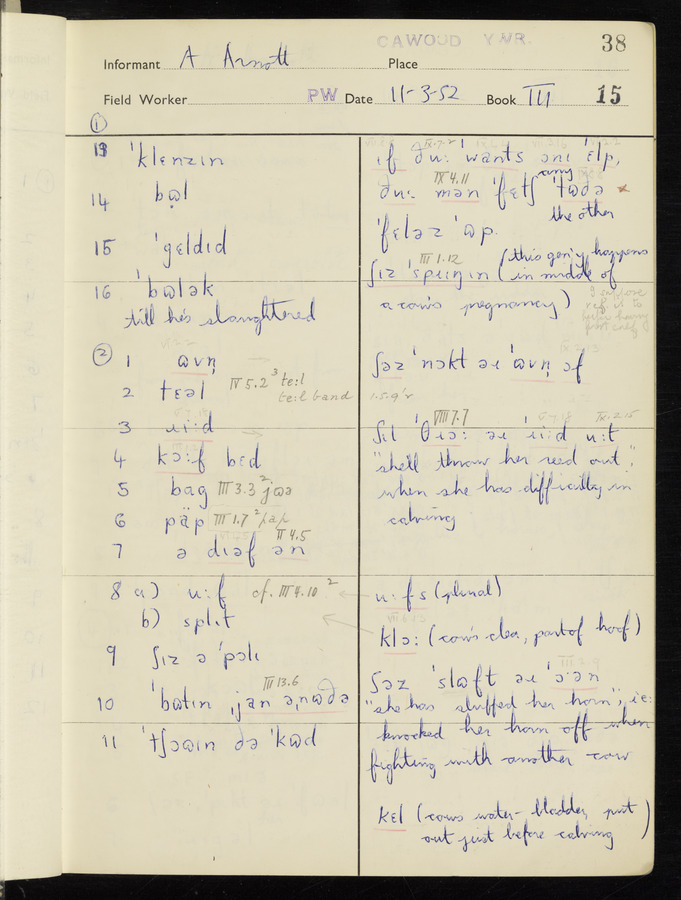 CAWOOD YWR.
38
Informant A Arnott Place
Field Worker PW Date 11-3-52 Book III 15
①
13 ˈklɛnzɪn
14 bʊl
15 ˈgɛldɪd
16 ˈbʊlək
till he's slaughtered
② 1 ʊvn̩
2 tɛəl IV 5.2³ te:l
te:l band
3 ɹi:d
4 kɔ:f bɛd
5 bag III 3.3² jʊə
6 päp III 1.7² pap
7 ə dɪəf ən II 4.5
8 a) u:f cf. III 4.10²
b) splɪt
9 ʃɪz ə ˈpɔlɪ
10 ˈbʊtɪn ˌjan əˌnʊðə III 13.6
11 ˈtʃɔʊɪn ðə ˈkʊd
ɪf ðu: ˈwants ənɪ ˈɛlp,
any
IX 4.11
ðu: mən ˈfɛtʃ ˈtʊðə
the other
ˈfɛləz ˈʊp.
III 1.12
ʃɪz ˈspɪɪnɪn (this gen'y happens
in middle of
a cow's pregnancy)
I suppose
ref. is to
ʃəz ˈnɔkt əɹ ˈʊvn̩ əf
VIII 7.7
ʃɪl ˈθɹɔ: əɹ ˈɹi:d u:t
"she'll throw her reed out",
when she has difficulty in
calving
u:fs (plural)
klɔ: (cow's clea, part of hoof)
III 2.9
ʃəz ˈslʊft əɹ ˈɔ:ən
"she has sluffed her horn", ie:
knocked her horn off when
fighting with another cow
kɛl (cow's water-bladder, put
out just before calving)